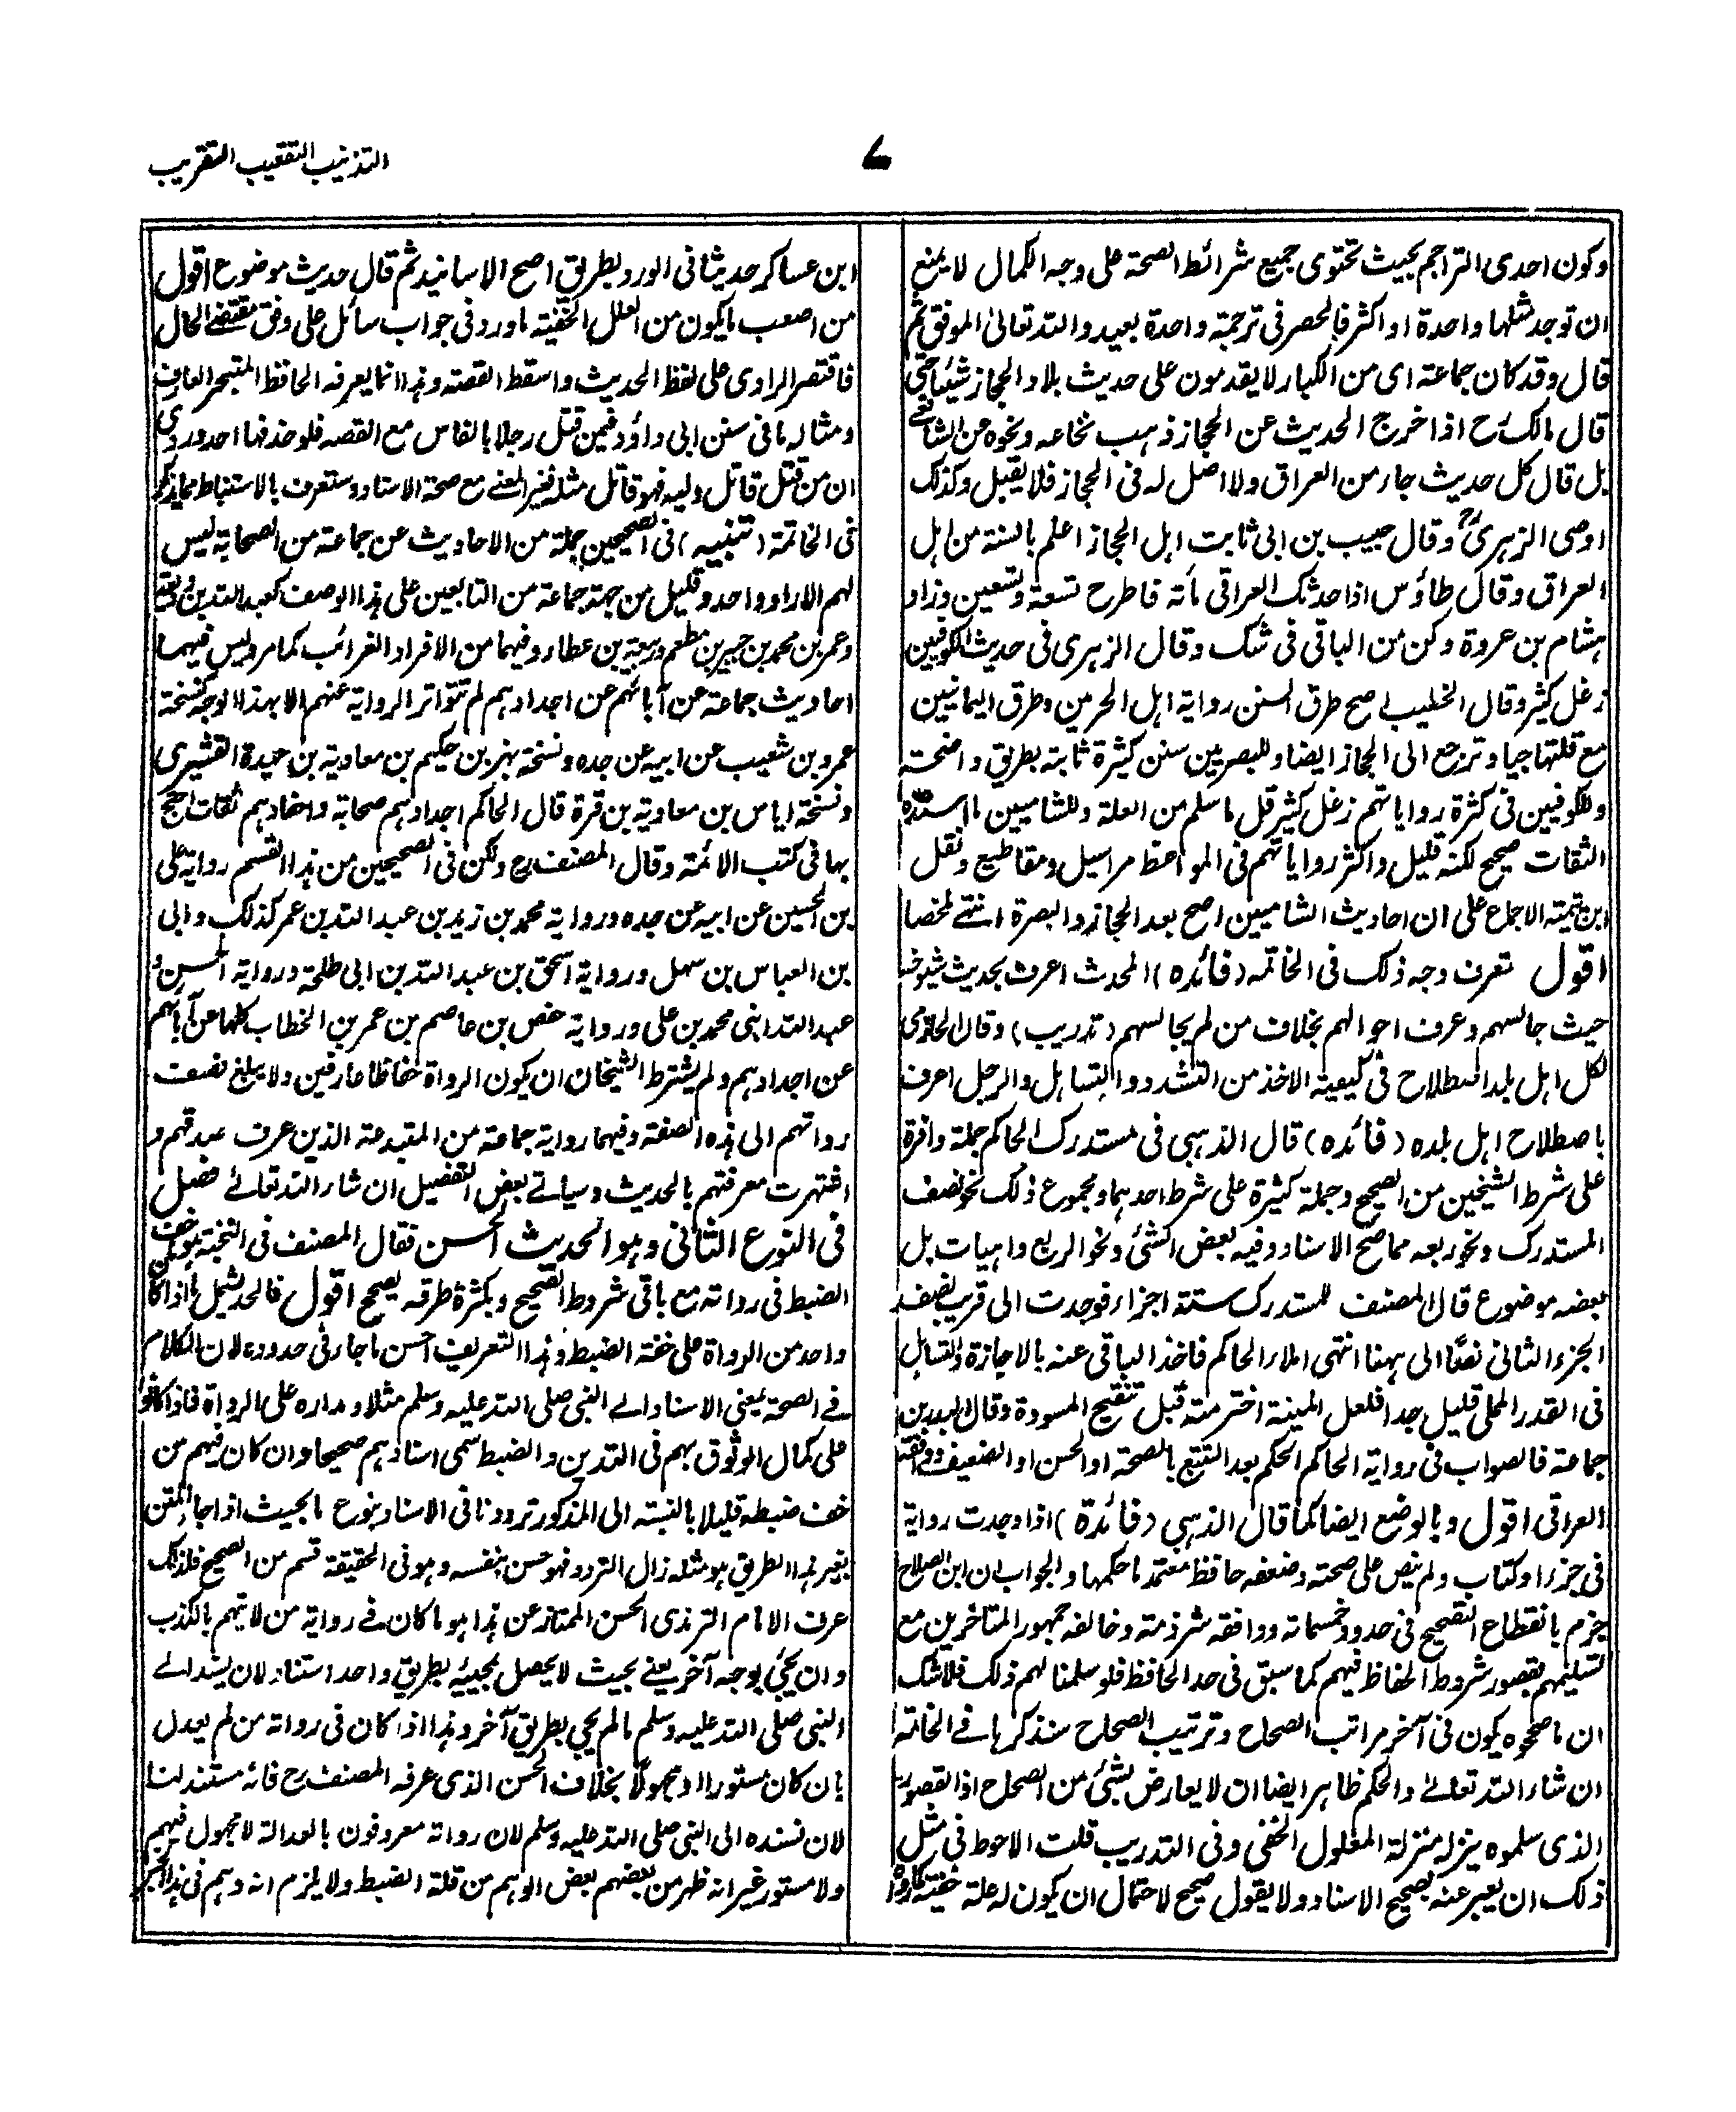 التذنيب التعقيب التقريب
٧
وكون احدى التراجم بحيث تحتوى جميع شرائط الصحة على وجه الكمال لا يمنع
ان توجد مثلها واحدة او اكثر فالحصر فى ترجمة واحدة بعيد والله تعالى الموفق ثم
قال وقد كان جماعة اى من الكبار لا يقدمون على حديث بلاد الحجاز شيئا حتى
قال مالك رح اذا خرج الحديث عن الحجاز ذهب نخاعه ونحوه عن الشافعى
بل قال كل حديث جاء من العراق ولا اصل له فى الحجاز فلا يقبل وكذلك
اوصى الزهرى رح وقال حبيب بن ابى ثابت اهل الحجاز اعلم بالسنة من اهل
العراق وقال طاؤس اذا حدثك العراقى مأته فاطرح تسعة وتسعين وزاد
هشام بن عروة وكن من الباقى فى شك وقال الزهرى فى حديث الكوفيين
زغل كثير وقال الخطيب اصح طرق السنن رواية اهل الحرمين وطرق اليمانيين
مع قلتها جياد ترجع الى الحجاز ايضا وللبصريين سنن كثيرة ثابتة بطريق واضحة
وللكوفيين فى كثرة رواياتهم زغل كثير قل ما سلم من العلة وللشاميين ما اسنده
الثقات صحيح لكنه قليل واكثر رواياتهم فى المواعظ مراسيل ومقاطيع ونقل
ابن تيمية الاجماع على ان احاديث الشاميين اصح بعد الحجاز والبصرة انتهى ملخصا
اقول تعرف وجه ذلك فى الخاتمه (فائده) المحدث اعرف بحديث شيوخ
حيث جالسهم وعرف احوالهم بخلاف من لم يجالسهم (تدريب) وقال الحازمى
لكل اهل بلد اصطلاح فى كيفية الاخذ من التشدد والتساهل والرجل اعرف
باصطلاح اهل بلده (فائده) قال الذهبى فى مستدرك الحاكم جملة وافرة
على شرط الشيخين من الصحيح وجملة كثيرة على شرط احدهما ومجموع ذلك نحو نصف
المستدرك ونحو ربعه مما صح الاسناد وفيه بعض الشئ ونحو الربع واهيات بل
بعضه موضوع قال المصنف للمستدرك ستة اجزاء فوجدت الى قريب نصف
الجزء الثانى نصًا الى ههنا انتهى املاء الحاكم فاخذ الباقى عنه بالاجازة والتساهل
فى القدر المملى قليل جدا فلعل المنية اخترمته قبل تنقيح المسودة وقال البدر بن
جماعة فالصواب فى رواية الحاكم الحكم بعد التتبع بالصحة او الحسن او الضعيف ووافقه
العراقى اقول وبالوضع ايضا كما قال الذهبى (فائدة) اذا وجدت رواية
فى جزء او كتاب ولم ينص على صحته وضعفه حافظ معتمد ما حكمها والجواب ان ابن الصلاح
جزم بانقطاع التصحيح فى حدود خمسمائة ووافقه شرذمة وخالفه جمهور المتاخرين مع
تسليمهم بقصور شروط الحفاظ فيهم كما سبق فى حد الحافظ فلو سلمنا لهم ذلك فلا شك
ان ما صححوه يكون فى آخر مراتب الصحاح وترتيب الصحاح سنذكرها فى الخاتمه
ان شاء الله تعالى والحكم ظاهر ايضا ان لا يعارض بشئ من الصحاح اذ القصور
الذى سلموه ينزله منزلة المعلول الخفى وفى التدريب قلت الاحوط فى مثل
ذلك ان يعبر عنه بصحيح الاسناد ولا يقول صحيح لاحتمال ان يكون له علة خفية
ابن عساكر حديثا فى الورد بطريق اصح الاسانيد ثم قال حديث موضوع اقول
من اصعب ما يكون من العلل الخفية ما ورد فى جواب سائل على وفق مقتضى الحال
فاقتصر الراوى على لفظ الحديث واسقط القصة وهذا انما يعرفه الحافظ المتبحر العارف
ومثاله ما فى سنن ابى داؤد فيمن قتل رجلا بالفاس مع القصه فلو حذفها احد وروى
ان من قتل قاتل وليه فهو قاتل مثله فغير المعنى مع صحة الاسناد وستعرف بالاستنباط مما يذكر
فى الخاتمة (تنبيه) فى الصحيحين جملة من الاحاديث عن جماعة من الصحابة ليس
لهم الا راو واحد وقليل من جهة جماعة من التابعين على هذا الوصف كعبد الله بن وديعة
وعمر بن محمد بن جبير بن مطعم وربيعة بن عطاء وفيهما من الافراد الغرائب كما مر وليس فيهما
احاديث جماعة عن آبائهم عن اجدادهم لم تتواتر الرواية عنهم الا بهذا الوجه كنسخة
عمرو بن شعيب عن ابيه عن جده ونسخة بهز بن حكيم بن معاوية بن حيدة القشيرى
ونسخة اياس بن معاوية بن قرة قال الحاكم اجدادهم صحابة واحفادهم ثقات احتج
بها فى كتب الائمة وقال المصنف رح ولكن فى الصحيحين من هذا القسم رواية على
بن الحسين عن ابيه عن جده ورواية محمد بن زيد بن عبد الله بن عمر كذلك وابى
بن العباس بن سهل ورواية اسحق بن عبد الله بن ابى طلحة ورواية الحسن و
عبد الله ابنى محمد بن على ورواية حفص بن عاصم بن عمر بن الخطاب كلها عن آبائهم
عن اجدادهم ولم يشترط الشيخان ان يكون الرواة حفاظا عارفين ولا يبلغ نصف
رواتهم الى هذه الصفة وفيهما رواية جماعة من المبتدعة الذين عرف صدقهم و
اشتهرت معرفتهم بالحديث وسياتى بعض التفصيل ان شاء الله تعالى فصل
فى النوع الثانى وهو الحديث الحسن فقال المصنف فى النخبة هو خف
الضبط فى رواته مع باقى شروط الصحيح وبكثرة طرقه يصحح اقول فالحد يشمل ما اذا كان
واحد من الرواة على خفة الضبط وهذا التعريف احسن ما جاء فى حدوده لان الكلام
فى الصحة بمعنى الاسناد الى النبى صلى الله عليه وسلم مثلا ومداره على الرواة فاذا كانوا
على كمال الوثوق بهم فى التدين والضبط سمى اسنادهم صحيحا وان كان فيهم من
خف ضبطه قليلا بالنسبة الى المذكور ترددنا فى الاسناد بنوع ما بحيث اذا جاء المتن
بغير هذا الطريق هو مثله زال التردد فهو حسن بنفسه وهو فى الحقيقة قسم من الصحيح فلذلك
عرف الامام الترمذى الحسن الممتاز عن هذا هو ما كان فى رواية من لا يتهم بالكذب
وان يجئ بوجه آخر يعنى بحيث لا يحصل بمجيئه بطريق واحد استناد لان يسند الى
النبى صلى الله عليه وسلم ما لم يجى بطريق آخر وهذا اذا كان فى رواته من لم يعدل
بان كان مستورا او مجهولًا بخلاف الحسن الذى عرفه المصنف رح فانه مستند لنا
لان نسنده الى النبى صلى الله عليه وسلم لان رواته معروفون بالعدالة لا مجهول فيهم
ولا مستور غير انه ظهر من بعضهم بعض الوهم من قلة الضبط ولا يلزم انه وهم فى هذا الخبر